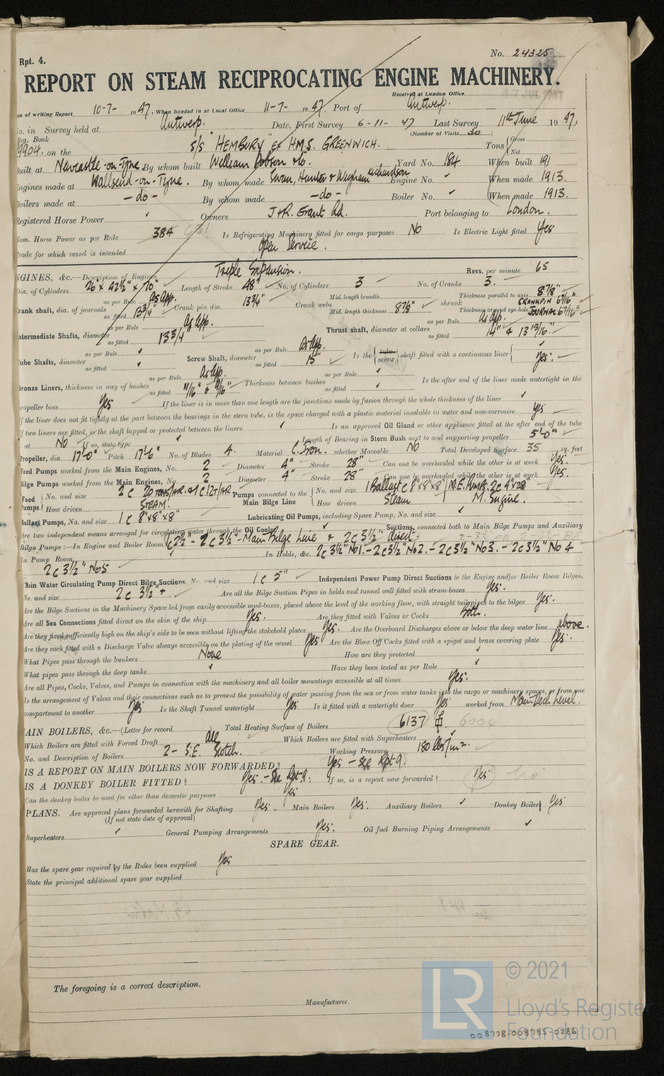 Rpt. 4.
No. 24325
REPORT ON STEAM RECIPROCATING ENGINE MACHINERY.
Received at London Office
of writing Report 10-7- 1947. When handed in at Local Office 11-7- 1947 Port of Antwerp.
in Survey held at Antwerp. Date, First Survey 6-11-47 Last Survey 11th June 1947.
Book (Number of Visits 30)
on the S/S "HEMBURY" EX HMS. GREENWICH. Tons Gross Net
built at Newcastle-on-Tyne. By whom built William Dobson & Co. Yard No. 184 When built 191
Engines made at Wallsend-on-Tyne. By whom made Swan, Hunter & Wigham Richardson Engine No. ✓ When made 1913.
Boilers made at -do- By whom made -do- Boiler No. ✓ When made 1913.
Registered Horse Power ✓ Owners J & R. Grant Ltd. Port belonging to London.
Nom. Horse Power as per Rule 384 Is Refrigerating Machinery fitted for cargo purposes No Is Electric Light fitted Yes
Trade for which vessel is intended Open Service.
ENGINES, &c.—Description of Engines Triple Expansion. Revs. per minute 65
Dia. of Cylinders 26 x 42½" x 70" Length of Stroke 48" No. of Cylinders 3 No. of Cranks 3.
Crank shaft, dia. of journals as per Rule As App. as fitted 13¾" Crank pin dia. 13¾" Crank webs Mid. length breadth Mid. length thickness 8⅞" shrunk Thickness parallel to axis 8⅞" Thickness around eye-hole
Intermediate Shafts, diameter as per Rule As App. as fitted 13¾" Thrust shaft, diameter at collars as per Rule As App. as fitted 14" & 13 13/16"
Tube Shafts, diameter as per Rule ✓ as fitted Screw Shaft, diameter as per Rule As App. as fitted 15" Is the tube screw shaft fitted with a continuous liner Yes.
Bronze Liners, thickness in way of bushes as per Rule As App. as fitted Thickness between bushes as per Rule ✓ as fitted Is the after end of the liner made watertight in the
propeller boss Yes If the liner is in more than one length are the junctions made by fusion through the whole thickness of the liner ✓
If the liner does not fit tightly at the part between the bearings in the stern tube, is the space charged with a plastic material insoluble in water and non-corrosive Yes
If two liners are fitted, is the shaft lapped or protected between the liners ✓ Is an approved Oil Gland or other appliance fitted at the after end of the tube
shaft No If so, state type ✓ Length of Bearing in Stern Bush next to and supporting propeller 5'0"
Propeller, dia. 17'0" Pitch 17'6" No. of Blades 4. Material C. Iron. whether Moveable No Total Developed Surface 35 sq. feet
Feed Pumps worked from the Main Engines, No. 2 Diameter 4" Stroke 28" Can one be overhauled while the other is at work Yes.
Bilge Pumps worked from the Main Engines, No. 2 Diameter 4" Stroke 28" Can one be overhauled while the other is at work Yes.
Feed Pumps No. and size How driven STEAM. Pumps connected to the Main Bilge Line No. and size 1 Ballast c 8"x8"x8" How driven Steam M. Engine.
Ballast Pumps, No. and size 1 c 8"x8"x8" Lubricating Oil Pumps, including Spare Pump, No. and size ✓
Are two independent means arranged for circulating water through the Oil Cooler Suctions, connected both to Main Bilge Pumps and Auxiliary
Bilge Pumps:—In Engine and Boiler Room 2 c 3½" - Main Bilge Line & 2 c 3½" direct.
In Pump Room In Holds, &c. 2 c 3½" No1. - 2 c 3½" No2. - 2 c 3½" No3. - 2 c 3½" No 4
2 c 3½" No5
Main Water Circulating Pump Direct Bilge Suctions, No. and size 1 c 5" Independent Power Pump Direct Suctions to the Engine and/or Boiler Room Bilges,
No. and size 2 c 3½" Are all the Bilge Suction Pipes in holds and tunnel well fitted with strum-boxes Yes.
Are the Bilge Suctions in the Machinery Space led from easily accessible mud-boxes, placed above the level of the working floor, with straight tail pipes to the bilges Yes.
Are all Sea Connections fitted direct on the skin of the ship Yes. Are they fitted with Valves or Cocks Both.
Are they fixed sufficiently high on the ship's side to be seen without lifting the stokehold plates Yes. Are the Overboard Discharges above or below the deep water line above.
Are they each fitted with a Discharge Valve always accessible on the plating of the vessel Yes. Are the Blow Off Cocks fitted with a spigot and brass covering plate Yes.
What Pipes pass through the bunkers None How are they protected ✓
What pipes pass through the deep tanks ✓ Have they been tested as per Rule ✓
Are all Pipes, Cocks, Valves, and Pumps in connection with the machinery and all boiler mountings accessible at all times Yes.
Is the arrangement of Valves and their connections such as to prevent the possibility of water passing from the sea or from water tanks into the cargo or machinery spaces, or from one
compartment to another Yes Is the Shaft Tunnel watertight Yes Is it fitted with a watertight door Yes. worked from Main Deck Level.
MAIN BOILERS, &c.—(Letter for record ) Total Heating Surface of Boilers 6137
Which Boilers are fitted with Forced Draft All Which Boilers are fitted with Superheaters ✓
No. and Description of Boilers 2- S.E. Scotch. Working Pressure 180 lbs/in².
IS A REPORT ON MAIN BOILERS NOW FORWARDED? Yes - See Rpt. 9.
IS A DONKEY BOILER FITTED? Yes - See Rpt. 9. If so, is a report now forwarded? Yes
Can the donkey boiler be used for other than domestic purposes Yes
PLANS. Are approved plans forwarded herewith for Shafting Yes. Main Boilers Yes. Auxiliary Boilers ✓ Donkey Boilers Yes
(If not state date of approval)
Superheaters ✓ General Pumping Arrangements Yes. Oil fuel Burning Piping Arrangements ✓
SPARE GEAR.
Has the spare gear required by the Rules been supplied Yes
State the principal additional spare gear supplied
The foregoing is a correct description.
Manufacturer.
LR © 2021
Lloyd's Register
Foundation
008778-008785-0286